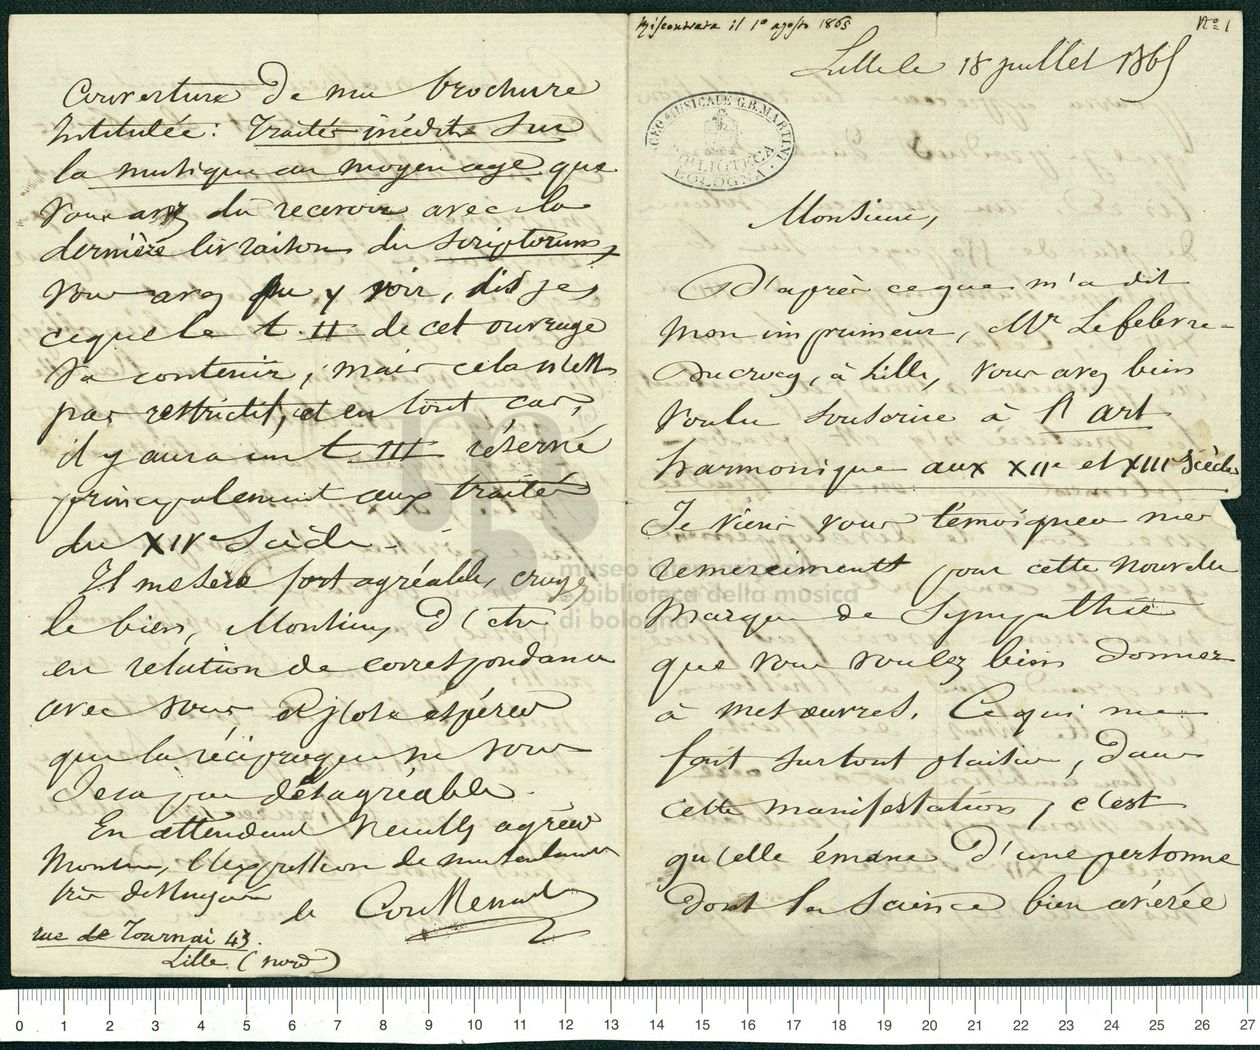 Riscontrata il 1º agosto 1865
Nº 1
Lille le 18 juillet 1865
LICEO MUSICALE G.B. MARTINI
BIBLIOTECA
BOLOGNA
Monsieur,
D'après ce que m'a dit
mon imprimeur, Mr. Lefebvre-
Ducrocq, à Lille, vous avez bien
voulu souscrire à l'art
harmonique aux XIIe et XIIIe Siècles
Je viens vous témoigner mes
remerciments pour cette nouvelle
marque de Sympathie
que vous voulez bien donner
à mes œuvres. Ce qui me
fait surtout plaisir, dans
cette manifestation, c'est
qu'elle émane d'une personne
dont la Science bien avérée
Couverture de ma brochure
Intitulée: Traités inédits sur
la musique au moyen age que
vous avez dû recevoir avec la
dernière livraison du Scriptorum,
vous avez pu y voir, dis je,
ce que le t. II de cet ouvrage
va contenir; mais cela n'est
pas restrictif, et en tout cas,
il y aura un t. III réservé
principalement aux traités
du XIVe Siècle.
Il me sera fort agréable, croyez
le bien, Monsieur, d'être
en relation de correspondance
avec vous et j'ose espérer
que la réciproque ne vous
sera pas désagréable.
En attendant veuillez agréer
Monsieur, l'expression de mes sentiments
très distingués
de Coussemaker
rue de Tournai 43.
Lille (nord)
museo internazionale
e biblioteca della musica
di bologna
0 1 2 3 4 5 6 7 8 9 10 11 12 13 14 15 16 17 18 19 20 21 22 23 24 25 26 27